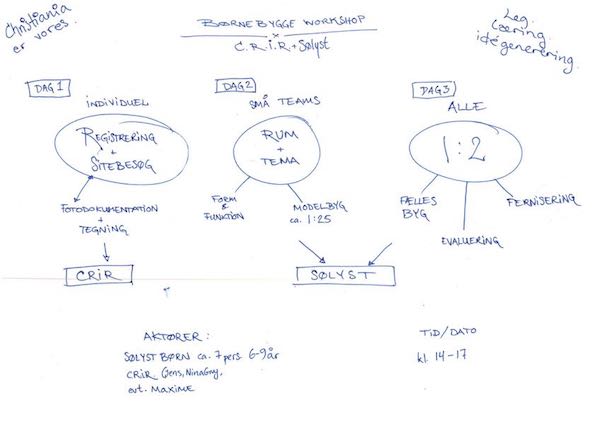 Christiania
er vores.
BØRNEBYGGE WORKSHOP
×
C.R.i.R + Sølyst
Leg.
Læring
idégenerering
DAG 1
INDIVIDUEL
REGISTRERING
+
SITEBESØG
FOTODOKUMENTATION
+
TEGNING
CRiR
DAG2
SMÅ TEAMS
RUM
+
TEMA
FORM
&
FUNKTION
MODELBYG
ca. 1:25
SØLYST
DAG3
ALLE
1:2
FÆLLES
BYG
EVALUERING
FERNISERING
AKTØRER:
SØLYST BØRN ca. 7 pers. 6-9 år
CRiR
evt. MAXIME
TID/DATO
kl. 14-17